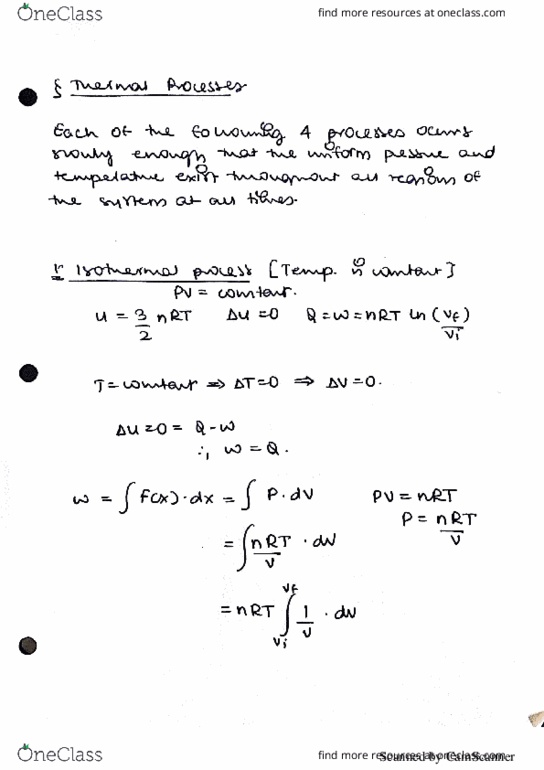 OneClass
find more resources at oneclass.com
§ Thermal Processes
Each of the following 4 processes occurs
slowly enough that the uniform pressure and
temperature exist throughout all regions of
the system at all times.
1. Isothermal process [Temp. is constant]
PV = constant.
U = 3/2 nRT ΔU = 0 Q = W = nRT ln (Vf/Vi)
T = constant ⇒ ΔT = 0 ⇒ ΔV = 0.
ΔU = 0 = Q - W
∴, W = Q.
W = ∫ F(x)·dx = ∫ P·dV PV = nRT
P = nRT/V
= ∫ nRT/V · dV
= nRT ∫Vi^Vf 1/V · dV
OneClass
find more resources at oneclass.com
Scanned by CamScanner